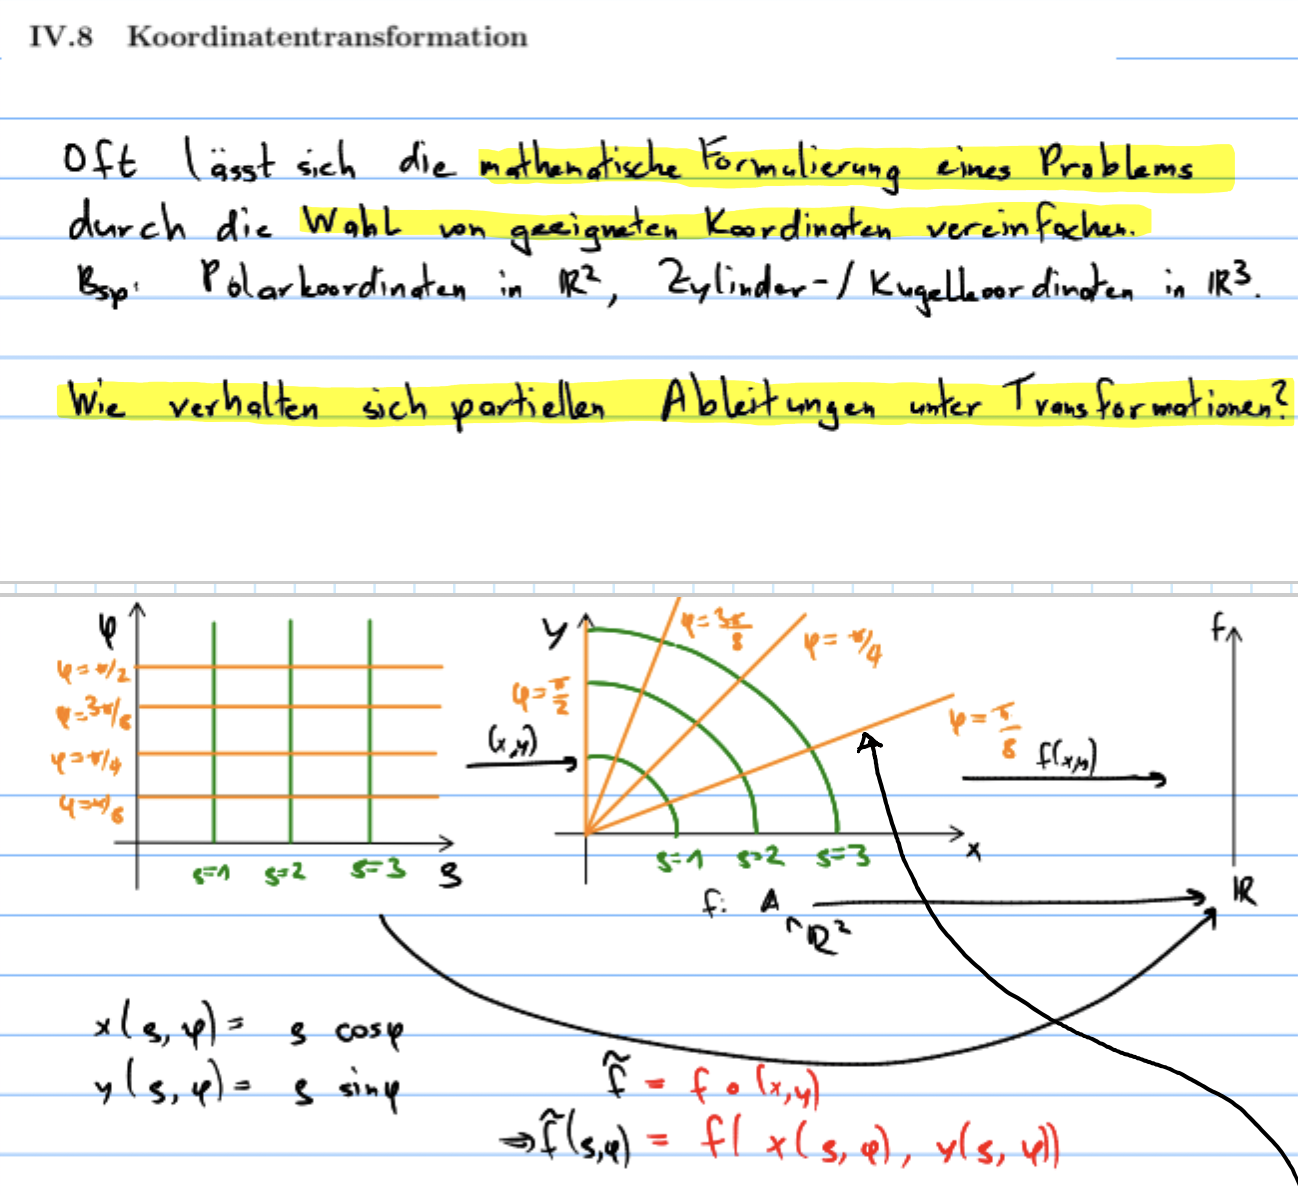 IV.8 Koordinatentransformation
Oft lässt sich die mathematische Formulierung eines Problems
durch die Wahl von geeigneten Koordinaten vereinfachen.
Bsp: Polarkoordinaten in ℝ², Zylinder-/Kugelkoordinaten in ℝ³.
Wie verhalten sich partiellen Ableitungen unter Transformationen?
φ
φ=π/2
φ=3π/8
φ=π/4
φ=π/8
ρ=1 ρ=2 ρ=3 ρ
(x,y)
y
φ=π/2
φ=3π/8
φ=π/4
φ=π/8
ρ=1 ρ=2 ρ=3 x
f(x,y)
f
ℝ
f: A
∩ℝ²
x(ρ,φ)= ρ cosφ
y(ρ,φ)= ρ sinφ
f̃ = f∘(x,y)
⇒f̃(ρ,φ) = f( x(ρ,φ), y(ρ,φ))